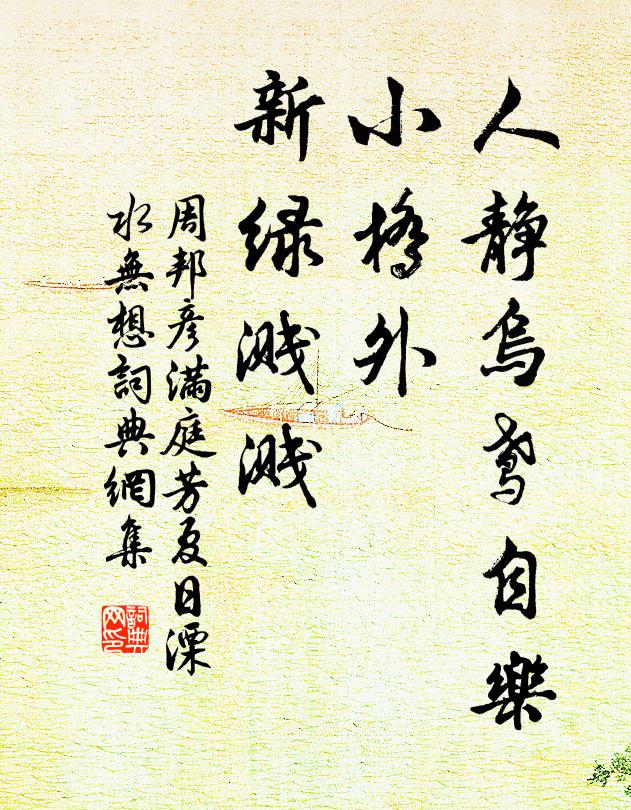 人靜烏鳶自樂
小橋外
新緑濺濺
周邦彦滿庭芳夏日溧
水無想詞典網集
詞典
网印